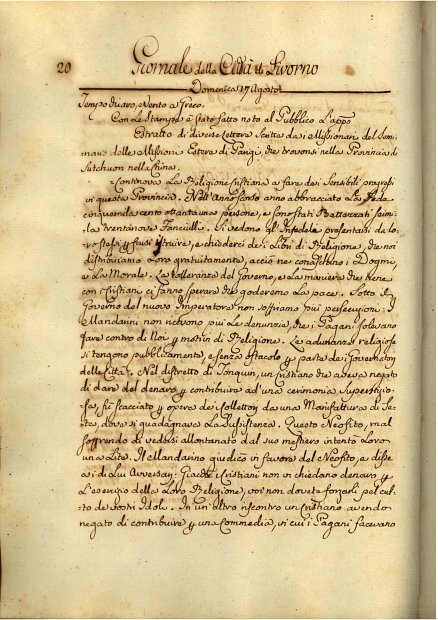 20 Giornale della Città di Livorno
Domenica 17 Agosto
Tempo Vario, e Vento a Greco.
Con Le Stampe è stato fatto noto al Pubblico L'app.o
Estratto di diverse Lettere Scritte da i Missionari del Semi-
nario delle Missioni Estere di Parigi, che trovonsi nella Provincia di
Sutchuen nella China.
Continova La Religione Cristiana a fare dei Sensibili progressi
in questa Provincia. Nell'Anno scorso anno abbracciato La Fede
cinquemila cento ottantuna persone, e sono stati Battezzati
trentanove Fanciulli. Si vedono gl'Infedeli presentarsi da lo-
ro stessi p farsi istruire, e chiederci dei Libri di Religione, che noi
distribuiamo Loro gratuitamente, acciò ne conoschino i Dogmi,
e La Morale. La tolleranza del Governo, e La maniera che tiene
con i Cristiani ci fanno sperare che goderemo La pace. Sotto il
Governo del nuovo Imperatore non soffriamo più persecuzioni. I
Mandarini non ricevono più Le denunzie, che i Pagani solevano
fare contro di Noi p motivi di Religione. Le adunanze religiose
si tengono pubblicamente, e senza ostacolo p parte dei Governatori
delle Città. Nel distretto di Tonquin, un cristiano che aveva negato
di dare del denaro p contribuire ad'una cerimonia Superstizio-
sa, fù scacciato p opera dei Collettori da una Manifattura di Se-
ta, dove si guadagnava La Sussistenza. Questo Neofito, mal
soffrendo di vedersi allontanato dal suo mestiero intentò Loro
una Lite. Il Mandarino giudicò in favore del Neofito, e disse
ai di Lui Avversarj: Giacchè i Cristiani non vi chiedano denaro p
L'esercizio della Loro Religione, voi non dovete forzarli pel cul-
to de vostri Idoli. In un'altro riscontro un Cristiano avendo
negato di contribuire p una Commedia, in cui i Pagani facevano